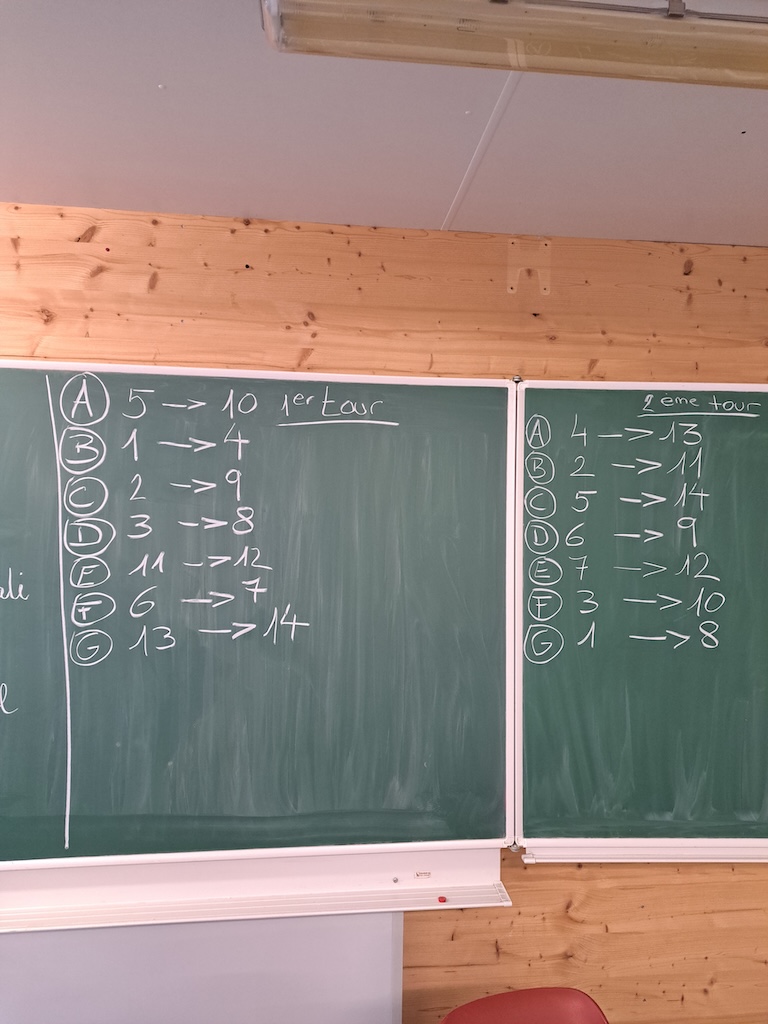 1er tour
A 5 -> 10
B 1 -> 4
C 2 -> 9
D 3 -> 8
E 11 -> 12
F 6 -> 7
G 13 -> 14
2ème tour
A 4 -> 13
B 2 -> 11
C 5 -> 14
D 6 -> 9
E 7 -> 12
F 3 -> 10
G 1 -> 8